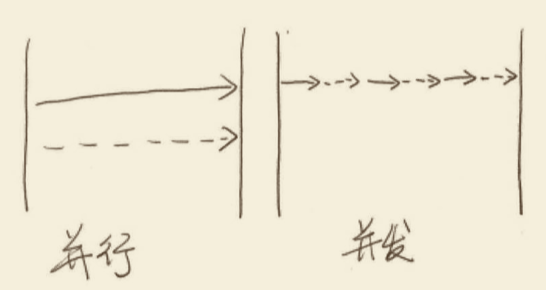 并行
并发